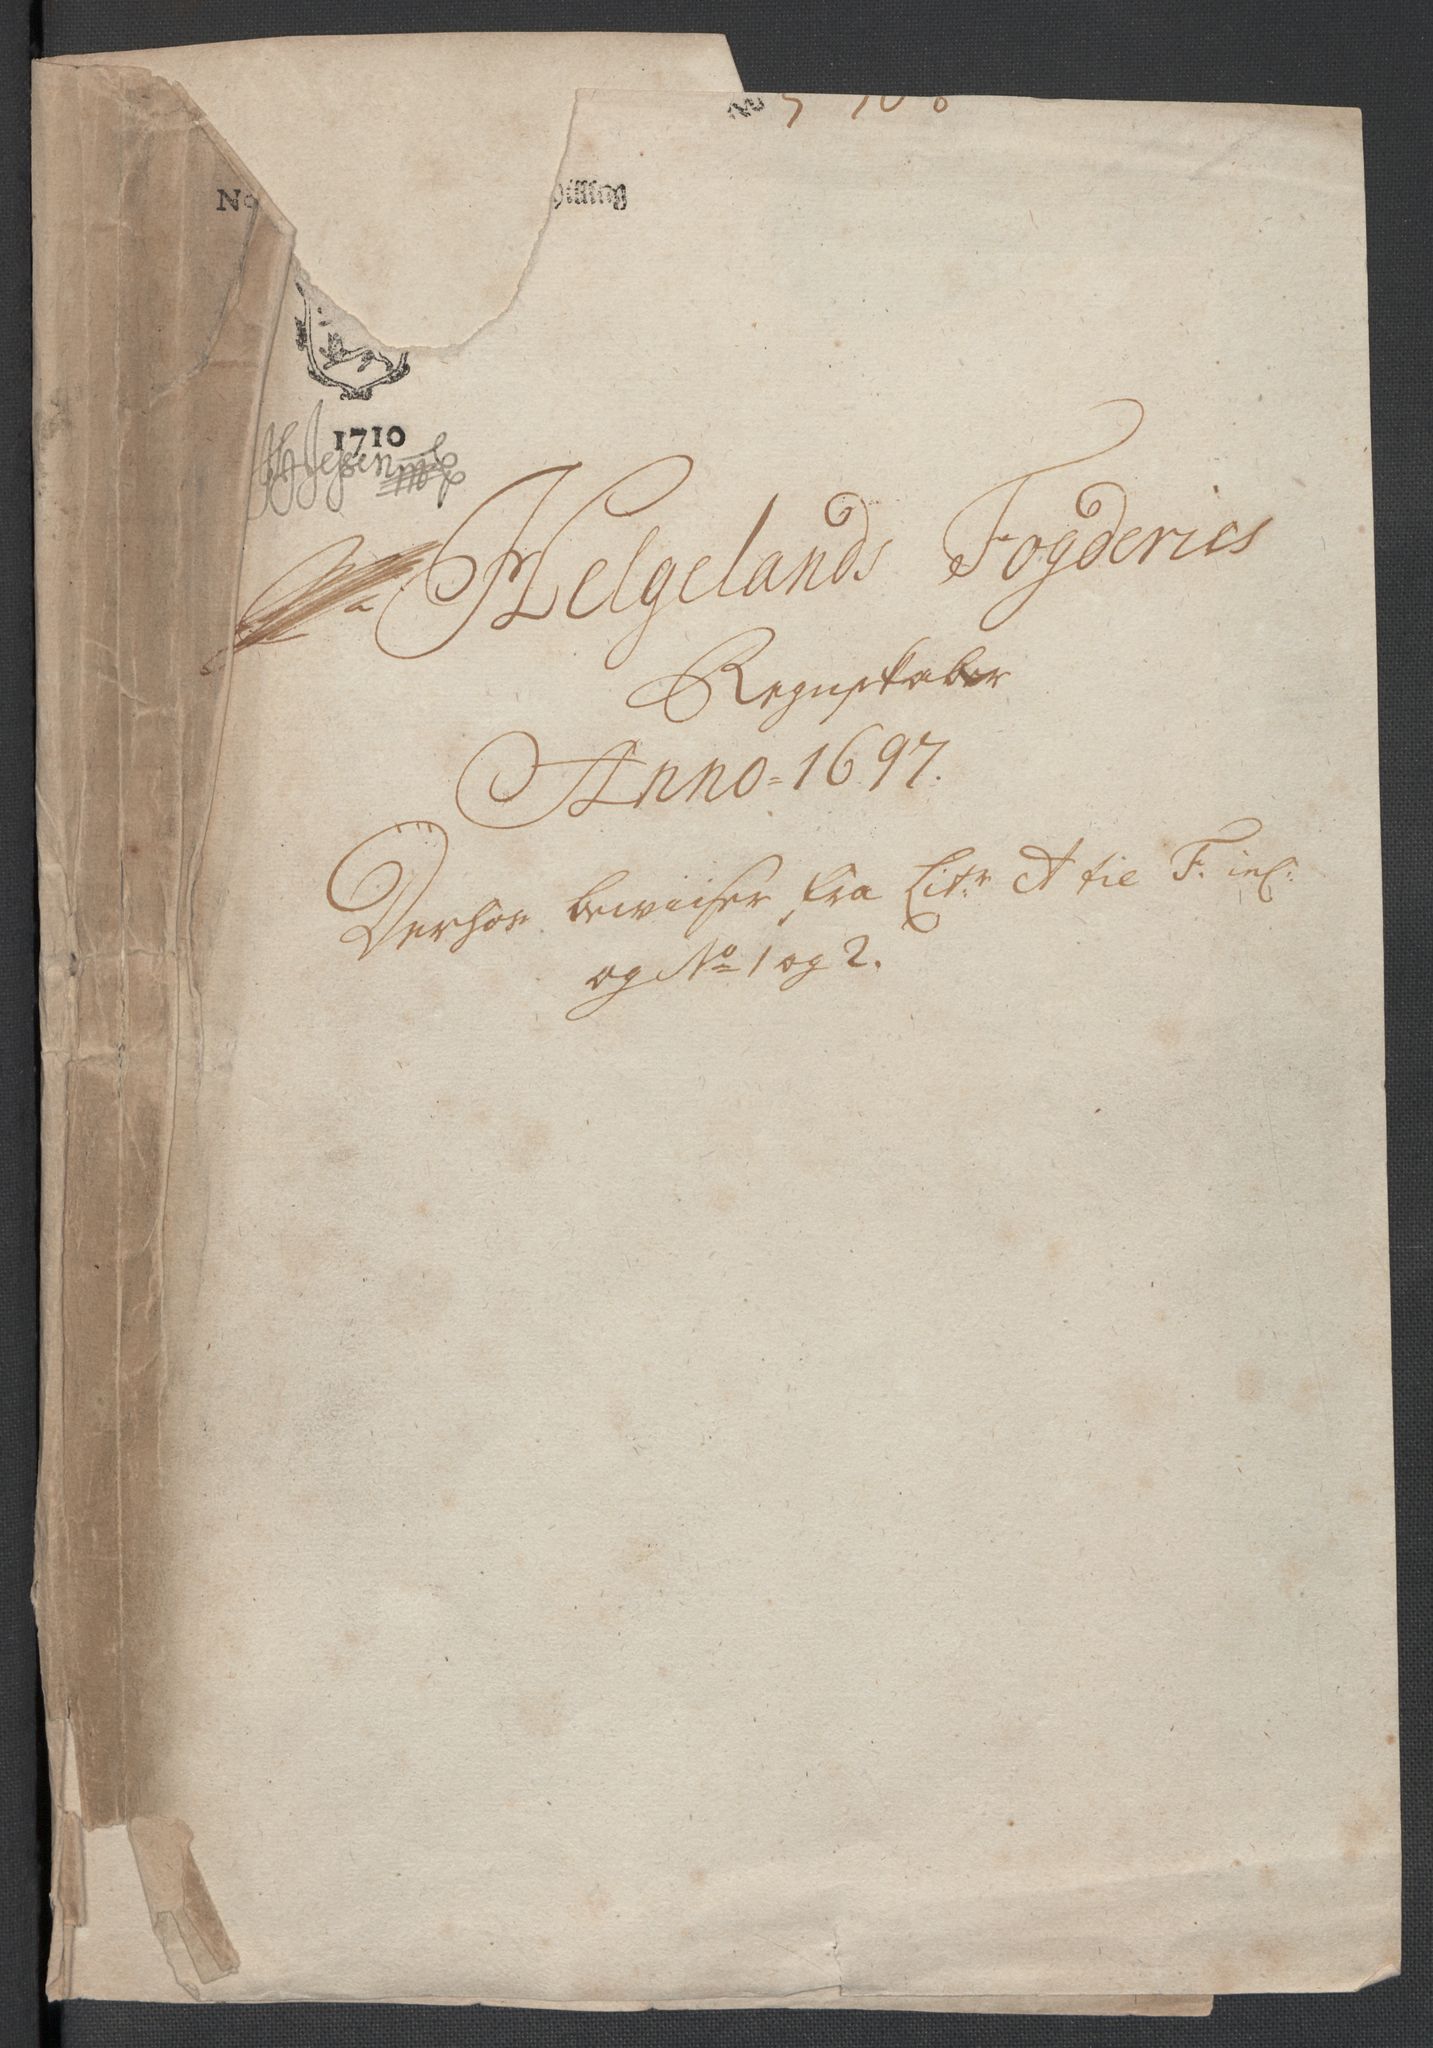 No hilling
1710
Helgelands Fogderies
Regnskaber
Anno = 1697.
Derhos beviiser fra Litr A til F. incl:
og No 1 og 2.